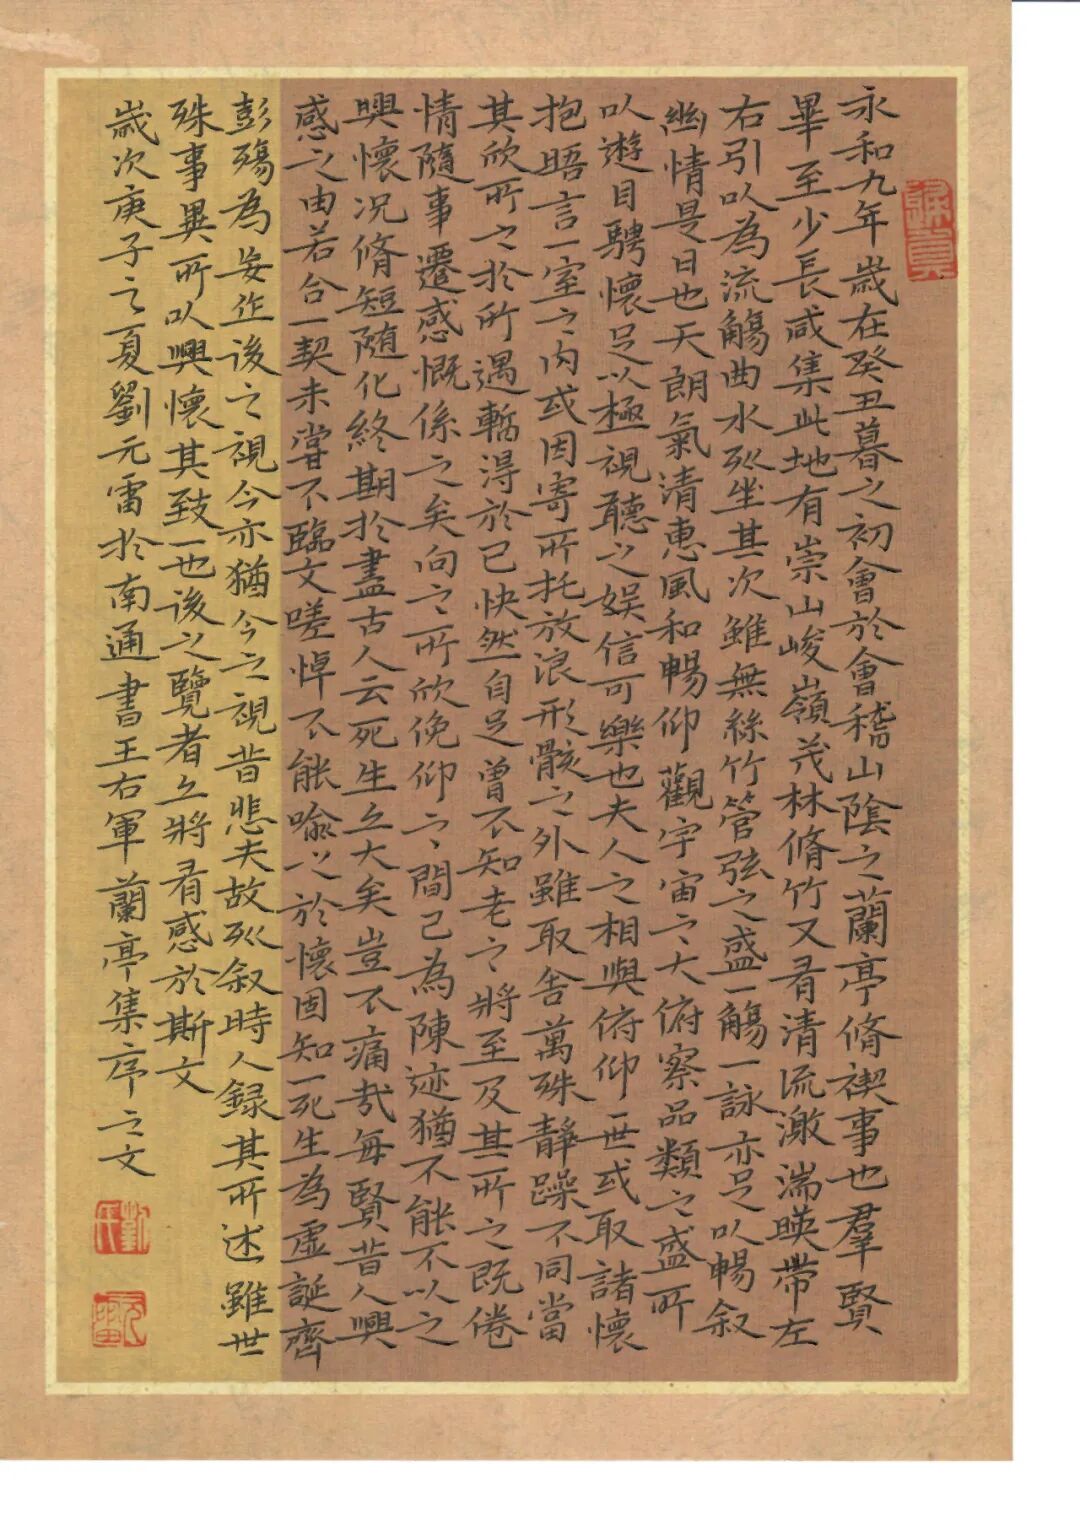 歸真
永和九年歲在癸丑暮之初會於會稽山陰之蘭亭脩禊事也羣賢
畢至少長咸集此地有崇山峻嶺茂林脩竹又有清流激湍暎帶左
右引以為流觴曲水列坐其次雖無絲竹管弦之盛一觴一詠亦足以暢叙
幽情是日也天朗氣清惠風和暢仰觀宇宙之大俯察品類之盛所
以遊目騁懷足以極視聽之娛信可樂也夫人之相與俯仰一世或取諸懷
抱晤言一室之內或因寄所托放浪形骸之外雖取舍萬殊静躁不同當
其欣所之於所遇暫得於己快然自足曾不知老之將至及其所之既倦
情隨事遷感慨係之矣向之所欣俛仰之間已為陳迹猶不能不以之
興懷況脩短隨化終期於盡古人云死生亦大矣豈不痛哉每賢昔人興
感之由若合一契未嘗不臨文嗟悼不能喻之於懷固知一死生為虛誕齊
彭殤為妄作後之視今亦猶今之視昔悲夫故列叙時人錄其所述雖世
殊事異所以興懷其致一也後之覽者亦將有感於斯文
歲次庚子之夏劉元雷於南通書王右軍蘭亭集序之文
元雷